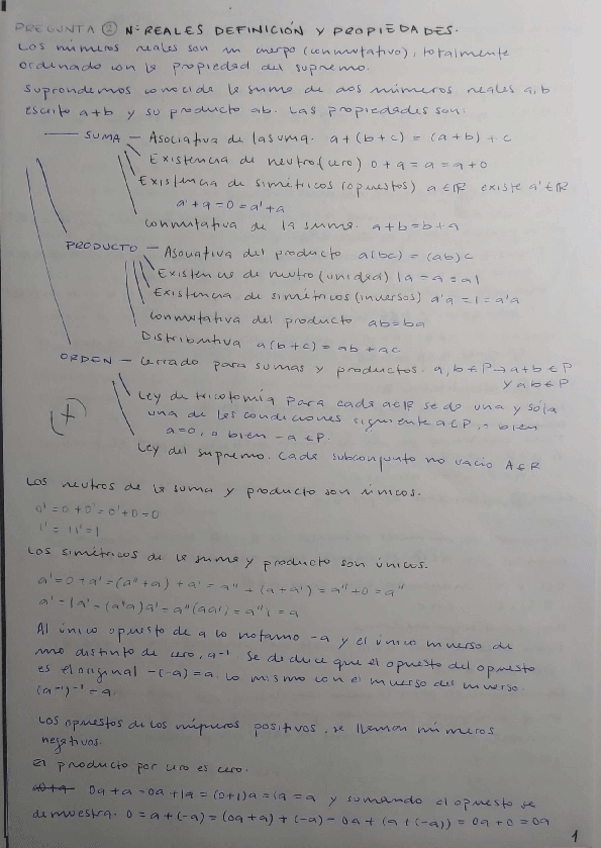 PREGUNTA ② Nº REALES DEFINICIÓN Y PROPIEDADES.
Los números reales son un cuerpo (conmutativo), totalmente
ordenado con la propiedad del supremo.
Suprondemos conocida la suma de dos números reales a, b
escrito a+b y su producto ab. Las propiedades son:
SUMA — Asociativa de la suma. a+(b+c) = (a+b)+c
Existencia de neutro (cero) 0+a=a=a+0
Existencia de simétricos (opuestos) a∈ℝ existe a'∈ℝ
a'+a=0=a'+a
Conmutativa de la suma. a+b=b+a
PRODUCTO — Asociativa del producto a(bc)=(ab)c
Existencia de neutro (unidad) 1a=a=a1
Existencia de simétricos (inversos) a'a=1=a'a
Conmutativa del producto ab=ba
Distributiva a(b+c)=ab+ac
ORDEN — Cerrado para sumas y productos. a, b∈P→a+b∈P
y ab∈P
Ley de tricotomía para cada a∈ℝ se da una y sola
una de las condiciones siguiente a∈P, o bien
a=0, o bien -a∈P.
Ley del supremo. Cada subconjunto no vacío A∈ℝ
(+)
Los neutros de la suma y producto son únicos.
0'=0+0'=0'+0=0
1'=11'=1
Los simétricos de la suma y producto son únicos.
a'=0+a'=(a''+a)+a'=a''+(a+a')=a''+0=a''
a'=1a'=(a''a)a'=a''(aa')=a''1=a
Al único opuesto de a lo notamo -a y el único inverso de
uno distinto de cero, a⁻¹ se deduce que el opuesto del opuesto
es el original -(-a)=a. Lo mismo con el inverso del inverso.
(a⁻¹)⁻¹=a.
Los opuestos de los números positivos, se llaman números
negativos.
El producto por cero es cero.
0a+a=0a+1a=(0+1)a=1a=a y sumando el opuesto se
demuestra. 0=a+(-a)=(0a+a)+(-a)=0a+(a+(-a))=0a+0=0a
1